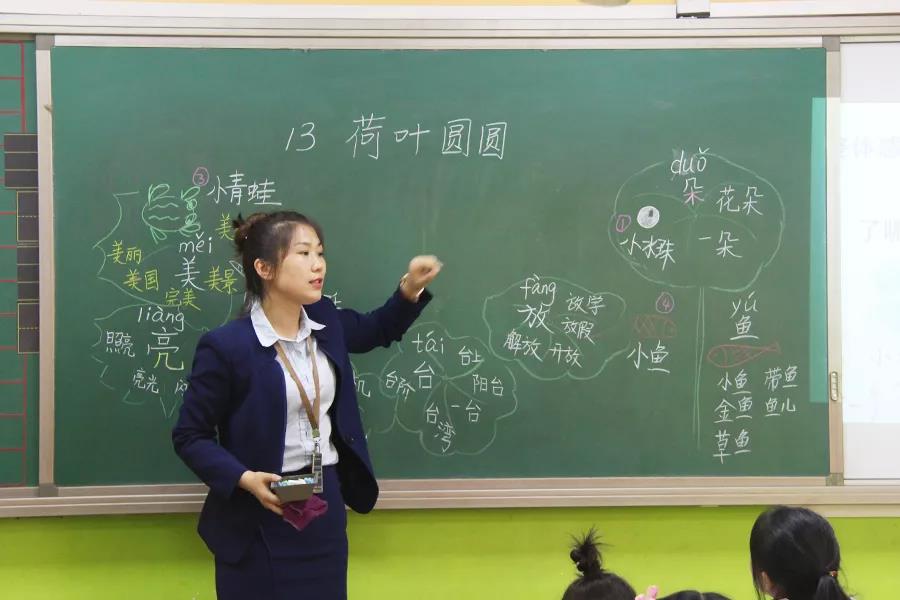 13 荷叶圆圆
③ 小青蛙
美
美丽
měi
美
美国
美景
完美
liàng
照亮
亮
亮光
tái
台
台上
台阶
阳台
台湾
一台
fàng
放
放学
放假
解放
开放
④
小鱼
duǒ
朵
花朵
①
小水珠
一朵
yú
鱼
小鱼
带鱼
金鱼
鱼儿
草鱼